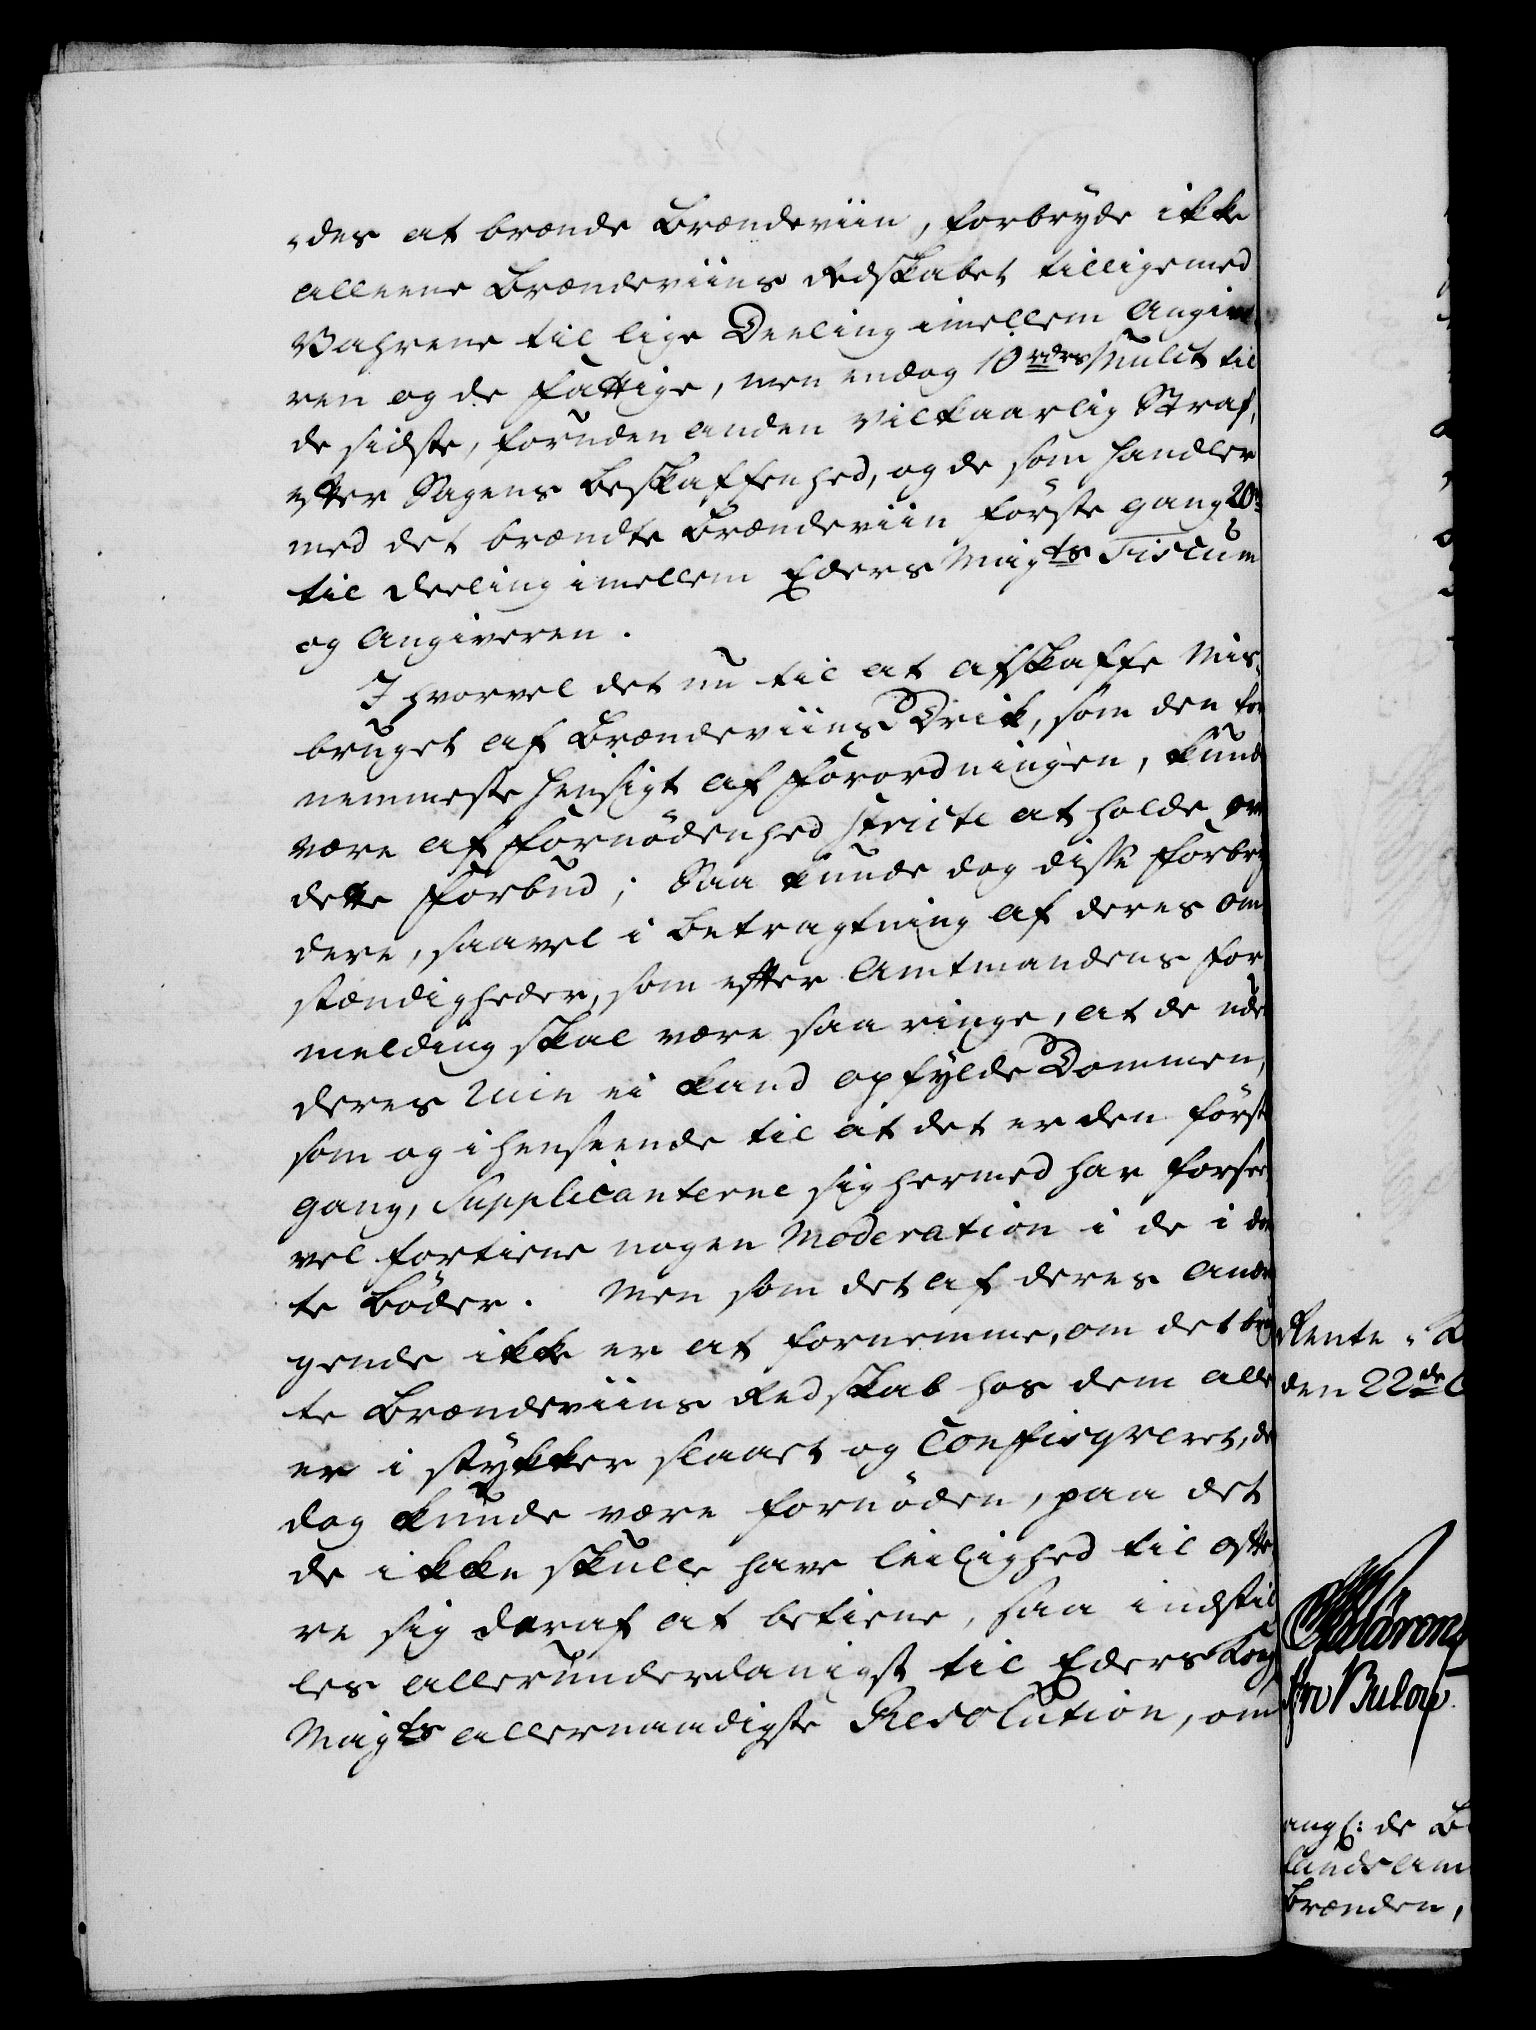 des at brænde Brændeviin, forbryde ikke
alleene Brændeviins Redskabet tilligemed
Vahrene til lige Deeling imellem Angive
ren og de Fattige, men endog 10 rdrs Mulct til
de sidste, foruden anden vilkaarlig Straf,
efter Sagens beskaffenhed, og de som handler
med det brændte Brændeviin første gang 20
til deeling imellem Eders Mayts Fiscum
og Angiveren.
Ihvorvel det nu til at afskaffe Mis-
bruget af Brændeviins Drik, som den for
nemmeste hensigt af Forordningen, kunde
være af Fornødenhed stricte at holde over
dette Forbud; Saa kunde dog disse Forbry
dere, saavel i betragtning af deres om
stændigheder, som efter Amtmandens For
melding skal være saa ringe, at de uden
deres Ruin ei kand opfylde Dommen,
som og i henseende til at det er den første
gang, Supplicanterne sig hermed har forseet
vel fortiene nogen Moderation i de i døm
te Bøder. Men som det af deres andra
gende ikke er at fornemme, om det brug
te Brændeviins Redskab hos dem alle
er i stykker slaaet og Confisqveret, det
dog kunde være fornøden, paa det
de ikke skulle have leilighed til ofte
re sig deraf at betiene, saa indstil
les allerunderdanigst til Eders Kongl
Mayts allernaadigste Resolution, om
Rente
den 22de
ang: de
lands Am
Brænden,